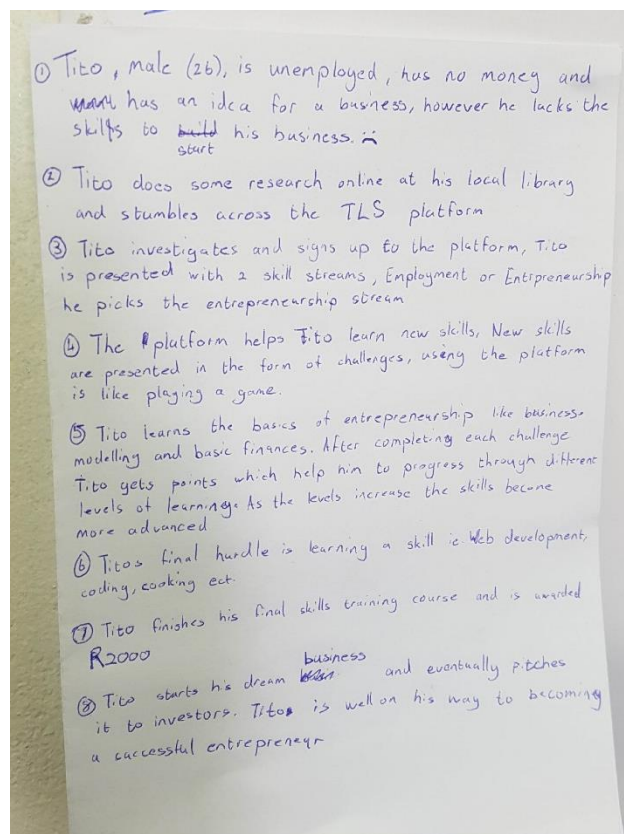 ① Tito, male (26), is unemployed, has no money and
has an idea for a business, however he lacks the
skills to build his business. :(
start
② Tito does some research online at his local library
and stumbles across the TLS platform
③ Tito investigates and signs up to the platform, Tito
is presented with 2 skill streams, Employment or Entrpreneurship
he picks the entrepreneurship stream
④ The platform helps Tito learn new skills, New skills
are presented in the form of challenges, using the platform
is like playing a game.
⑤ Tito learns the basics of entrepreneurship like business
modelling and basic finances. After completing each challenge
Tito gets points which help him to progress through different
levels of learning. As the levels increase the skills become
more advanced
⑥ Titos final hurdle is learning a skill ie Web development,
coding, cooking ect.
⑦ Tito finishes his final skills training course and is awarded
R2000
business
⑧ Tito starts his dream and eventually pitches
it to investors. Tito is well on his way to becoming
a successful entrepreneur